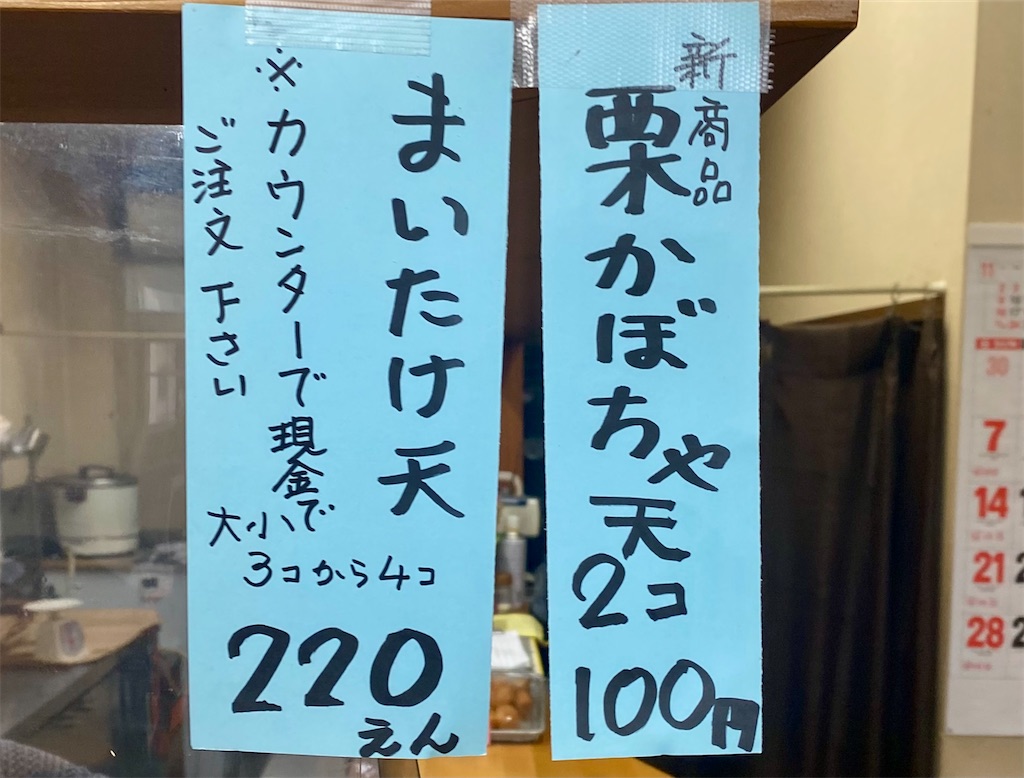 まいたけ天
※カウンターで現金で
ご注文下さい
大小
3コから4コ
220
えん
新商品
栗かぼちゃ天
2コ
100円
11
30
7
14
21
28